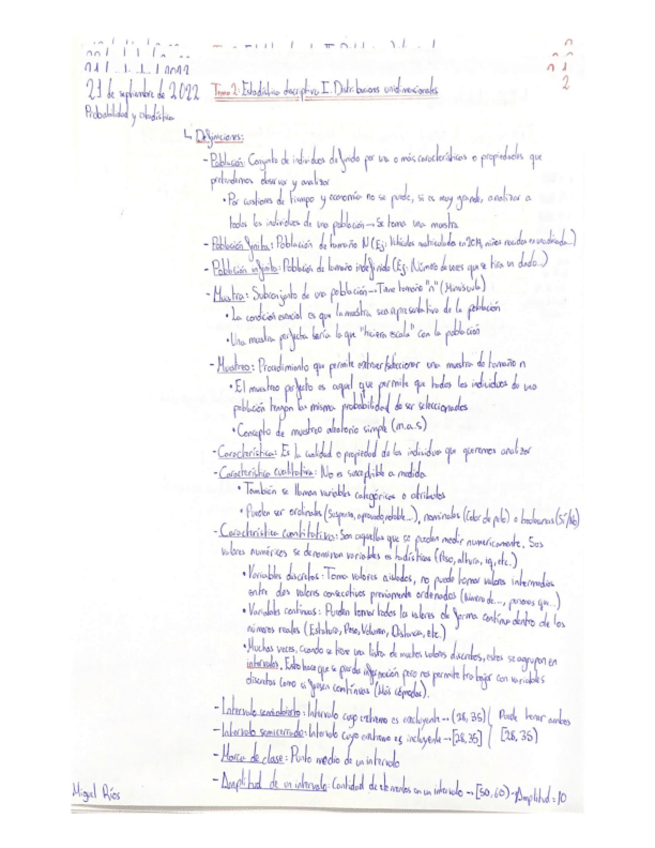 21 de septiembre de 2022 Tema 2: Estadística descriptiva I. Distribuciones unidimensionales
2
Probabilidad y estadística
↳ Definiciones:
- Población: Conjunto de individuos definido por una o más características o propiedades que
pretendemos observar y analizar
• Por cuestiones de tiempo y economía no se puede, si es muy grande, analizar a
todos los individuos de una población → Se toma una muestra
- Población finita: Población de tamaño N (Ej: Vehículos matriculados en 2014, niños nacidos en
- Población infinita: Población de tamaño indefinido (Ej: Número de veces que se tira un dado...)
- Muestra: Subconjunto de una población → Tiene tamaño "n" (Minúscula)
• La condición esencial es que la muestra sea representativa de la población
• Una muestra perfecta sería la que "hiciera escala" con la población
- Muestreo: Procedimiento que permite extraer/seleccionar una muestra de tamaño n
• El muestreo perfecto es aquel que permite que todos los individuos de una
población tengan la misma probabilidad de ser seleccionados
• Concepto de muestreo aleatorio simple (m.a.s)
- Característica: Es la cualidad o propiedad de los individuos que queremos analizar
- Característica cualitativa: No es susceptible a medida
• También se llaman variables categóricas o atributos
• Pueden ser ordinales (Suspenso, aprobado, notable...), nominales (Color de pelo) o (Sí/No)
- Característica cuantitativa: Son aquellas que se pueden medir numéricamente. Sus
valores numéricos se denominan variables estadísticas (Peso, altura, iq, etc.)
• Variables discretas: Toma valores aislados, no puede tomar valores intermedios
entre dos valores consecutivos previamente ordenados (Número de..., personas que...)
• Variables continuas: Pueden tomar todos los valores de forma continua dentro de los
números reales (Estatura, Peso, Volumen, Distancia, etc.)
• Muchas veces, cuando se tiene una lista de muchos valores discretos, estos se agrupan en
intervalos. Esto hace que se pierda información pero nos permite trabajar con variables
discretas como si fuesen continuas (Más cómodas).
- Intervalo semiabierto: Intervalo cuyo extremo es excluyente → (28, 35) ( Puede tener ambos
- Intervalo semicerrado: Intervalo cuyo extremo es incluyente → [28, 35] ( [28, 35)
- Marca de clase: Punto medio de un intervalo
- Amplitud de un intervalo: Cantidad de elementos en un intervalo → [50, 60) - Amplitud = 10
Miguel Ríos